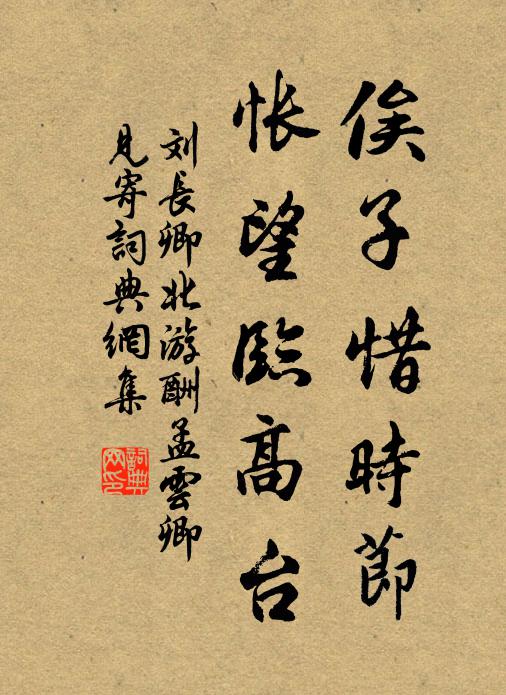 俟子惜時節
悵望臨高台
刘長卿北游酬孟雲卿
見寄詞典網集
詞典
网印